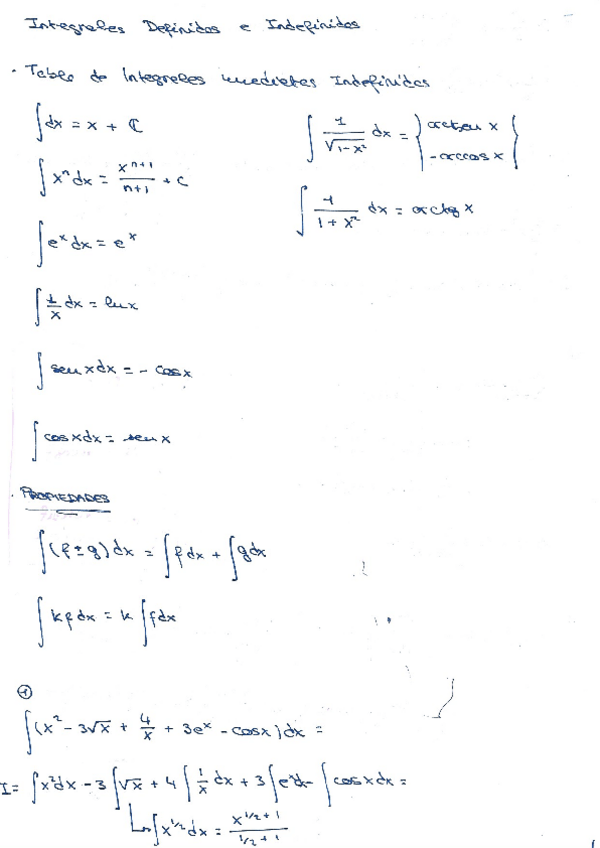 Integrales Definidas e Indefinidas
· Tabla de Integrales inmediatas Indefinidas
∫dx = x + C
∫xⁿdx = xⁿ⁺¹/n+1 + C
∫eˣdx = eˣ
∫1/x dx = lnx
∫senxdx = - cosx
∫cosxdx = senx
∫1/√1-x² dx = { arcsen x
-arccosx }
∫1/1+x² dx = arctg x
· PROPIEDADES
∫(f±g)dx = ∫fdx + ∫gdx
∫kfdx = k∫fdx
①
∫(x² - 3√x + 4/x + 3eˣ - cosx)dx =
I = ∫x²dx - 3∫√x + 4∫1/x dx + 3∫eˣdx - ∫cosxdx =
∫x^1/2 dx = x^1/2+1 / 1/2+1